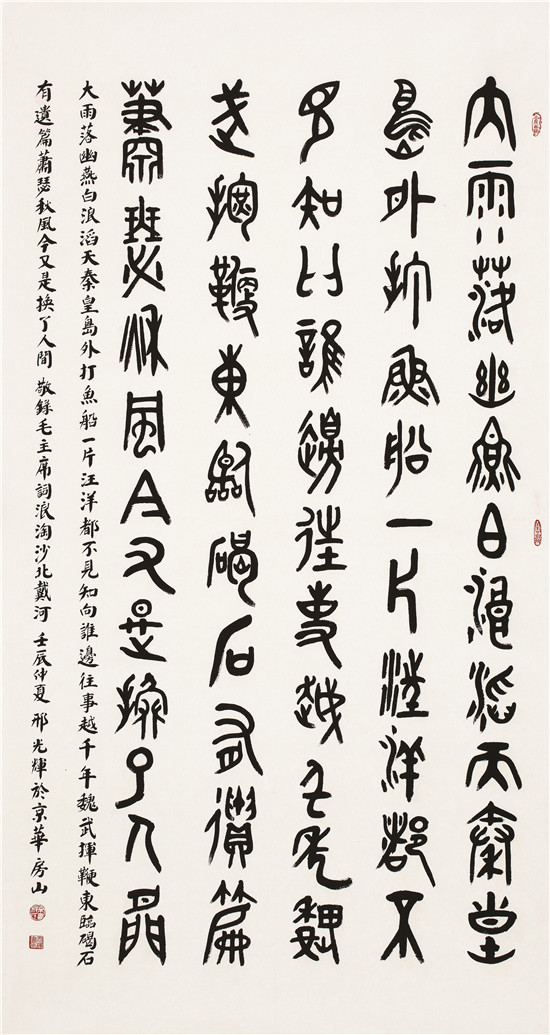 大雨落幽燕白浪滔天秦皇
島外打魚船一片汪洋都不
見知向誰邊往事越千年魏
武揮鞭東臨碣石有遺篇
蕭瑟秋風今又是換了人間
大雨落幽燕白浪滔天秦皇島外打魚船一片汪洋都不見知向誰邊往事越千年魏武揮鞭東臨碣石
有遺篇蕭瑟秋風今又是換了人間 敬錄毛主席詞浪淘沙北戴河 壬辰仲夏 邢光輝於京華房山